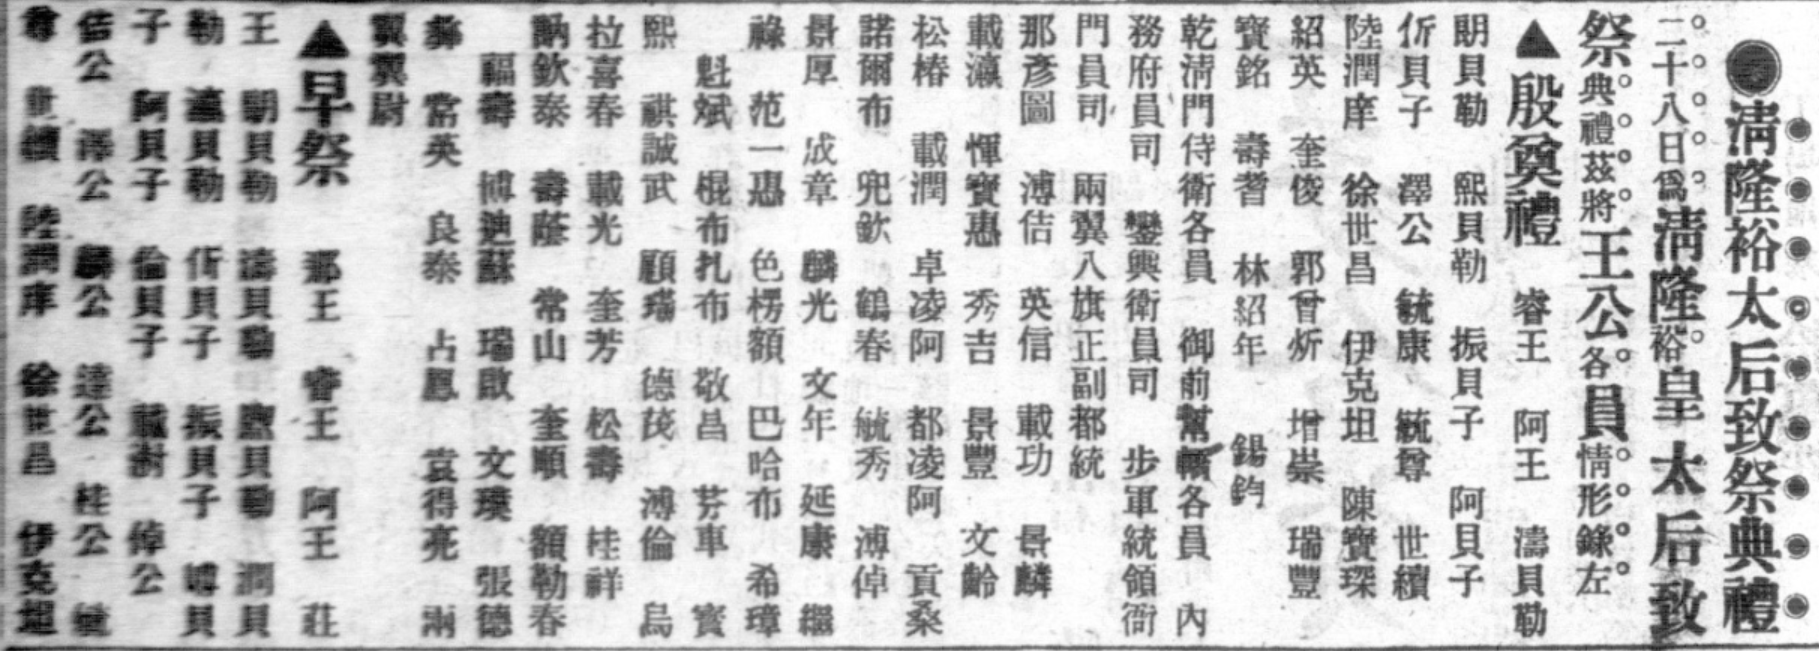 ●清隆裕太后致祭典禮
二十八日爲清隆裕皇太后致
祭典禮茲將王公各員情形錄左
▲殷奠禮 睿王 阿王 濤貝勒
朗貝勒 熙貝勒 振貝子 阿貝子
伒貝子 澤公 毓康 毓尊 世續
陸潤庠 徐世昌 伊克坦 陳寶琛
紹英 奎俊 郭曾炘 增崇 瑞豐
寶銘 壽耆 林紹年 錫鈞
乾淸門侍衛各員 御前幫轎各員 內
務府員司 鑾輿衛員司 步軍統領衙
門員司 兩翼八旗正副都統
那彥圖 溥佶 英信 載功 景麟
載瀛 惲寶惠 秀吉 景豐 文齡
松椿 載潤 卓凌阿 都凌阿 貢桑
諾爾布 兜欽 鶴春 毓秀 溥倬
景厚 成章 麟光 文年 延康 繼
祿 范一惠 色楞額 巴哈布 希璋
魁斌 棍布扎布 敬昌 芬車 寶
熙 祺誠武 顧瑞 德茂 溥倫 烏
拉喜春 載光 奎芳 松壽 桂祥
訥欽泰 壽蔭 常山 奎順 額勒春
福壽 博迪蘇 瑞啟 文璞 張德
彝 常英 良泰 占恩 袁得亮 兩
翼翼尉
▲早祭 那王 睿王 阿王 莊
王 朗貝勒 濤貝勒 熙貝勒 潤貝
勒 瀛貝勒 伒貝子 振貝子 博貝
子 阿貝子 倫貝子 載澍 倬公
佶公 澤公 麟公 達公 桂公 毓
尊 世續 陸潤庠 徐世昌 伊克坦